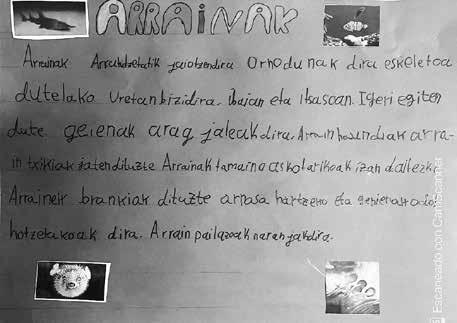 ARRAINAK
Arrainak Arrabtzetatik jaiotzendira Ornodunak dira eskeletoa
dutelako Uretan bizidira. Ibaian eta Itsasoan. Igeri egiten
dute geienak arag jaleak dira. Arrain haundiak arra-
in txikiak jaten dituzte Arrainak tamaina askotarikoak izan daitezke
Arrainek brankiak dituzte arnasa hartzeko eta gehienak odol
hotzekoak dira. Arrain pailazoak naranjak dira.
Escaneado con CamScanner